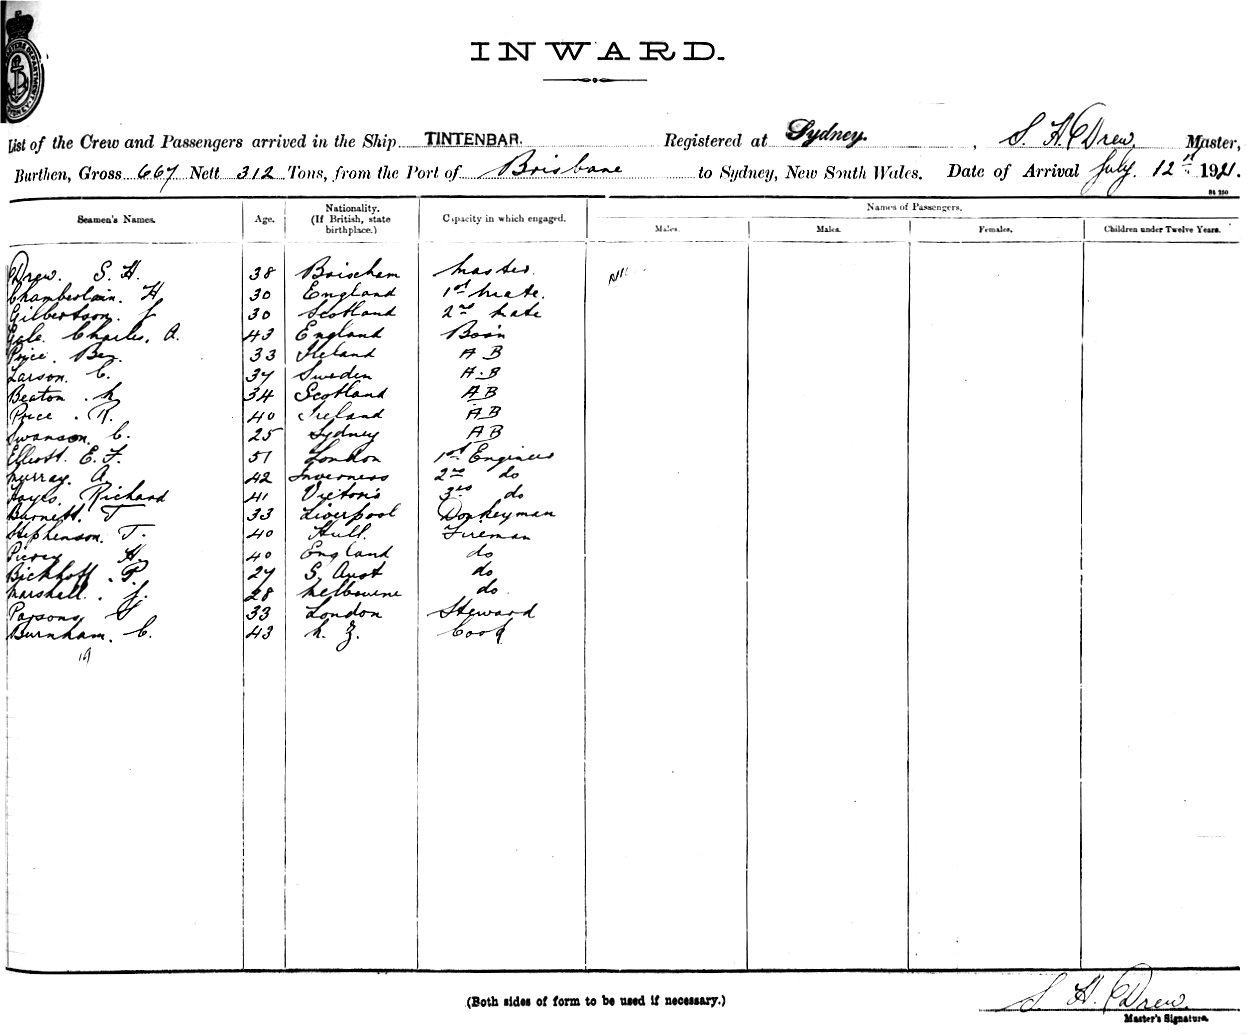 INWARD.
List of the Crew and Passengers arrived in the Ship TINTENBAR. Registered at Sydney. , S. H. Drew, Master,
Burthen, Gross 667 Nett 312 Tons, from the Port of Brisbane to Sydney, New South Wales. Date of Arrival July 12th 1921.
Seamen's Names. Age. Nationality. (If British, state birthplace.) Capacity in which engaged. Names of Passengers.
Males. Males. Females. Children under Twelve Years.
Drew. S. H. 38 Brixham Master. Nil
Chamberlain. H 30 England 1st Mate.
Gilbertson. J 30 Scotland 2nd Mate
Gale. Charles. A. 43 England Bosn
Price. Ben. 33 Ireland A B
Larson. C. 37 Sweden A.B
Beaton. M 34 Scotland AB
Price. R. 40 Ireland AB
Swanson. C. 25 Sydney AB
Elliott. E. F. 51 London 1st Engineer
Murray. A. 42 Inverness 2nd do
Hayes. Richard 41 Victoria 3rd do
Barnett. T 33 Liverpool Donkeyman
Stephenson. T. 40 Hull. Fireman
H. 40 England do
Bickhoff. P. 27 S. Aust do
Marshall. J. 28 Melbourne do.
Parsons 33 London Steward
Burnham. C. 43 N. Z. Cook
19
(Both sides of form to be used if necessary.)
S. H. Drew.
Master's Signature.